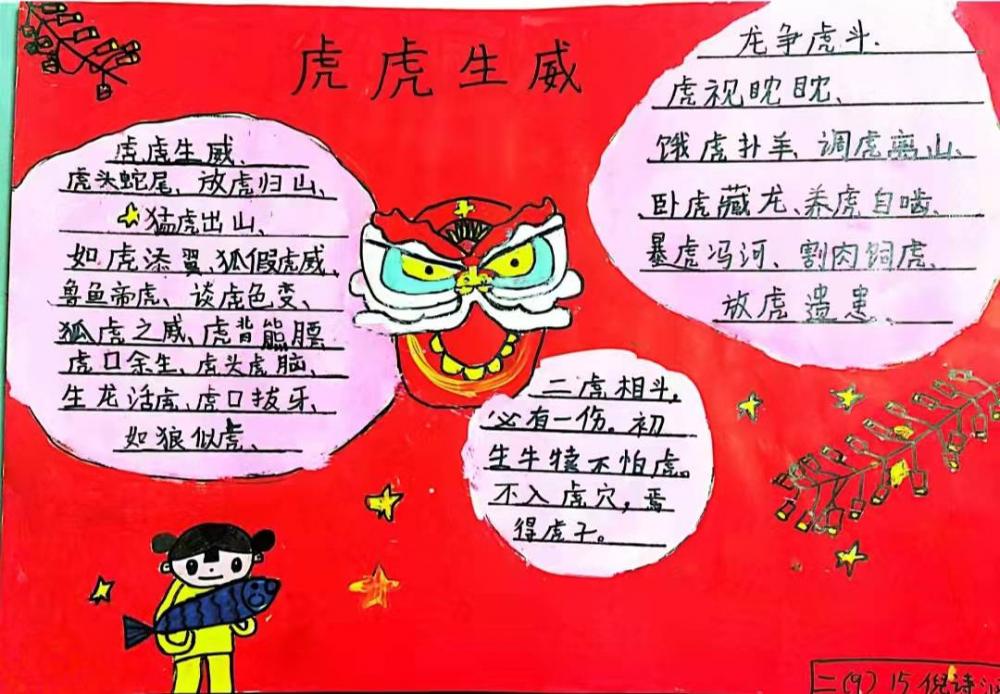 虎虎生威
虎虎生威、
虎头蛇尾、放虎归山、
猛虎出山、
如虎添翼、狐假虎威、
鲁鱼帝虎、谈虎色变、
狐虎之威、虎背熊腰
虎口余生、虎头虎脑、
生龙活虎、虎口拔牙、
如狼似虎、
龙争虎斗、
虎视眈眈、
饿虎扑羊、调虎离山、
卧虎藏龙、养虎自啮、
暴虎冯河、割肉饲虎、
放虎遗患、
二虎相斗，
必有一伤。初
生牛犊不怕虎。
不入虎穴，焉
得虎子。
二(9) 15 倪诗